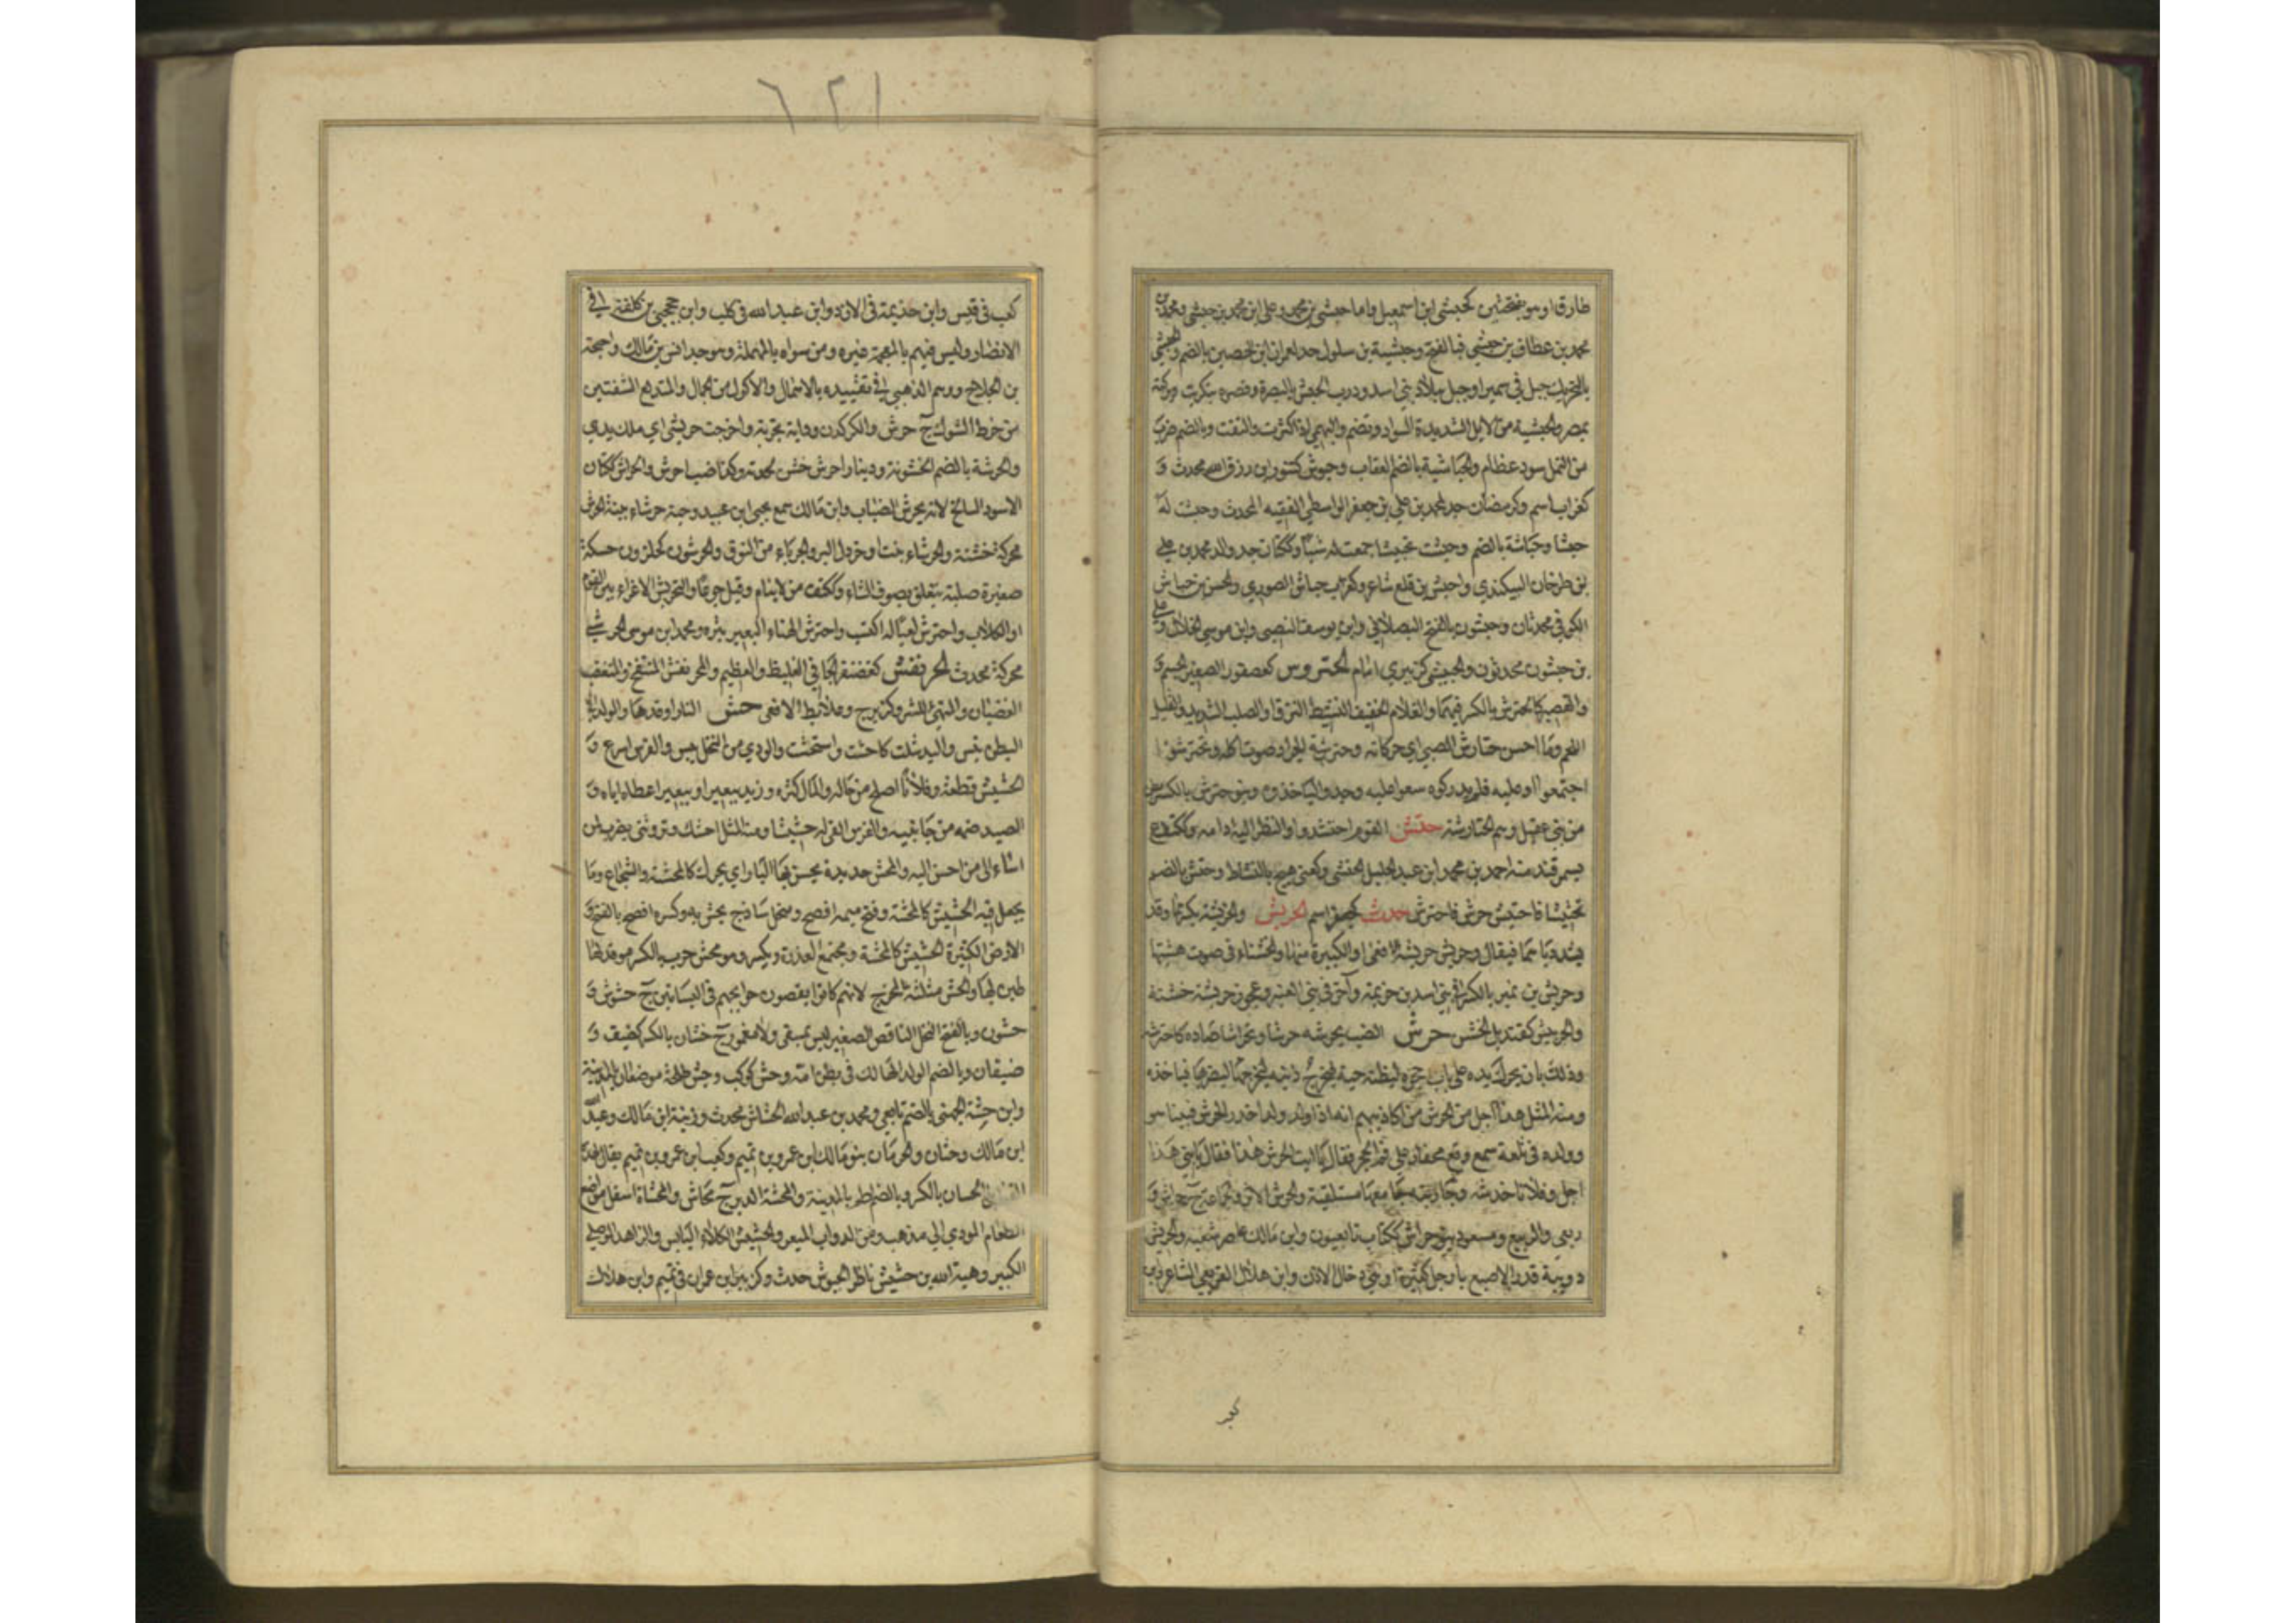 ٦٢١
طارق او هو بفتحتين كحبشى ابن اسمعيل واما حبشى بن محمد وعلى ابن محمد بن حبشى ومحمد بن
محمد بن عطاف بن حبشى فبالفتح وحبشية بن سلول جد لعمران ابن الحصين بالضم والحبشى
بالتحريك جبل فى سميرا وجبل ببلاد بنى اسد ودرب الحبش بالبصرة وقصره بتكريت وبركته
بمصر والحبشية من الابل الشديدة السواد وتضم والبهمى اذا كثرت والتفت وبالضم ضرب
من النمل سود عظام والحباشية بالضم العقاب وحبوش كتنور ابن رزق الله محدث و
كغراب اسم وكرمضان جد لمحمد بن على بن جعفر الواسطى الفقيه المحدث وحبش له
حبشا وحباشة بالضم وحبشت تحبيشا جمعت له شيئا وككتان جد والد محمد بن على
بن طرخان البيكندى واحبش بن قلع شاعر وكغراب حباش الصورى والحسن بن حباش
الكوفى محدثان وحبشون بالفتح البصلانى وابن يوسف النصيبى وابن موسى الخلال وعلى
بن حبشون محدثون والحبيشى كزبيرى امام الحتروش كعصفور الصغير الجسم و
والقصير كالحترش بالكسر فيهما والغلام الخفيف النشيط النزق او الصلب الشديد والقليل
اللحم وما احسن حتارش الصبى اى حركاته وحترشة الجراد صوت اكله وتحترشوا
اجتمعوا او عليه فلم يدركوه سعوا عليه وجدوا لياخذوه وبنو حترش بالكسر بطن
من بنى عقيل وهم الحتارشة حتش القوم احتشدوا والنظر اليه ادامه وككتف ع
بسمرقند منه احمد بن محمد ابن عبد الجليل الحتشى وكعنى هيج بالنشاط وحتش بالضم
تحتيشا فاحتتش حرش فاحترش حدش كجعفر اسم الحربش والحربشة بكسرهما وقد
يشدد باهما فيقال حربش حربشة الافعى او الكبيرة منها او الخشناء فى صوت مشيها
وحربش بن نمير بالكسر فى بنى اسد بن خزيمة وآخر فى بنى العنبر وعجوز حربشة خشنة
والحربيش كقنديل الخشن حرش الضب يحرشه حرشا وتحراشا صاده كاحترشه
وذلك بان يحرك يده على باب جحره ليظنه حية فيخرج ذنبه ليضربها فياخذه
ومنه المثل هذا اجل من الحرش من اكاذيبهم انه اذا ولد ولدا حذره الحرش فبينا هو
وولده فى تلعة سمع وقع محفار على فم الجحر فقال يا ابت الحرش هذا فقال يا بنى هذا
اجل وفلانا خدشه وجاريته جامعها مستلقية والحرش الاثر والجماعة ج حراش و
ربعى والربيع ومسعود بنو حراش ككتاب تابعيون وابن مالك عاصر شعبة والحريش
دويبة قدر الاصبع بارجل كثيرة او هى دخال الاذن وابن هلال القريعى الشاعر وابن
كعب
كعب فى قيس وابن جذيمة فى الازد وابن عبد الله فى كلب وابن جحجبى بن كلفة فى
الانصار وليس فيهم بالمعجمة غيره ومن سواه بالمهملة وهو جد انس بن مالك واحيحة
بن الجلاح ووهم الذهبى فى تقييده بالاهمال والاكول من الجمال والمتدلع الشفتين
من خرط الشوك ج حرش والكركدن ودابة بحرية واخرجت حريشتى اى ملك يدى
والحرشة بالضم الخشونة ودينار احرش خشن لجدته وكذا ضب احرش والحراش ككتان
الاسود السالخ لانه يحرش الضباب وابن مالك سمع يحيى ابن عبيد وحية حرشاء بينة الحرش
محركة خشنة والحرشاء نبت او خردل البر والجرباء من النوق والحرشون كحلزون حسكة
صغيرة صلبة تتعلق بصوف الشاء وككتف من لا ينام وقيل جوعا والتحريش الاغراء بين القوم
او الكلاب واحترش لعياله اكتسب واحرش الهناء البعير بثره ومحمد ابن موسى الحرشى
محركة محدث الحرنفش كغضنفر الجافى الغليظ والعظيم والمحرنفش المنتفخ والمتغضب
الغضبان والمتهيئ للشر وكزبرج وعلابط الافعى حش النار اوقدها والولد فى
البطن يبس واليد شلت كاحشت واستحشت والودى من النخل يبس والفرس اسرع و
الحشيش قطعه وفلانا اصلح من حاله والمال كثره وزيد ببعير او ببعير اعطاه اياه و
الصيد ضمه من جانبيه والفرس القى له حشيشا ومنه المثل احشك وتروثنى يضرب لمن
اساء الى من احسن اليه والمحش حديدة يحش بها النار اى يحرك كالمحشة والشجاع وما
يجعل فيه الحشيش كالمحشة وفتح ميمه افصح ومنجل ساذج يحش به وكسره افصح بالفتح و
الارض الكثيرة الحشيش كالمحشة ومجتمع العذرة ويكسر وهو محش حرب بالكسر موقد لها
طبن بها والحش مثلثة المخرج لانهم كانوا يقضون حوايجهم فى البساتين ج حشوش و
حشون وبالفتح النخل الناقص القصير ليس بمسقى ولا معمور ج حشان بالكسر كضيف و
ضيفان وبالضم الولد الهالك فى بطن امه وحش كوكب وحش طلحة موضعان بالمدينة
وابن حشة الجهنى بالضم تابعى ومحمد بن عبد الله الحشاش محدث وزبينة ابن مالك وعبد الله
ابن مالك وحشان والحرمان بنو مالك ابن عمرو بن تميم وكعب ابن عمرو بن تميم يقال لهذه
القبائل الحشان بالكسر وبالضم اطم بالمدينة والمحشة الدبر ج محاش والمحشاة اسفل مواضع
الطعام المودى الى مذهبه ومن الدواب المبعر والحشيش الكلاء اليابس والزاهد الموصلى
الكبير وهبة الله بن حشيش ناظر الجيوش حدث وكزبير ابن عمران فى تميم وابن هلال